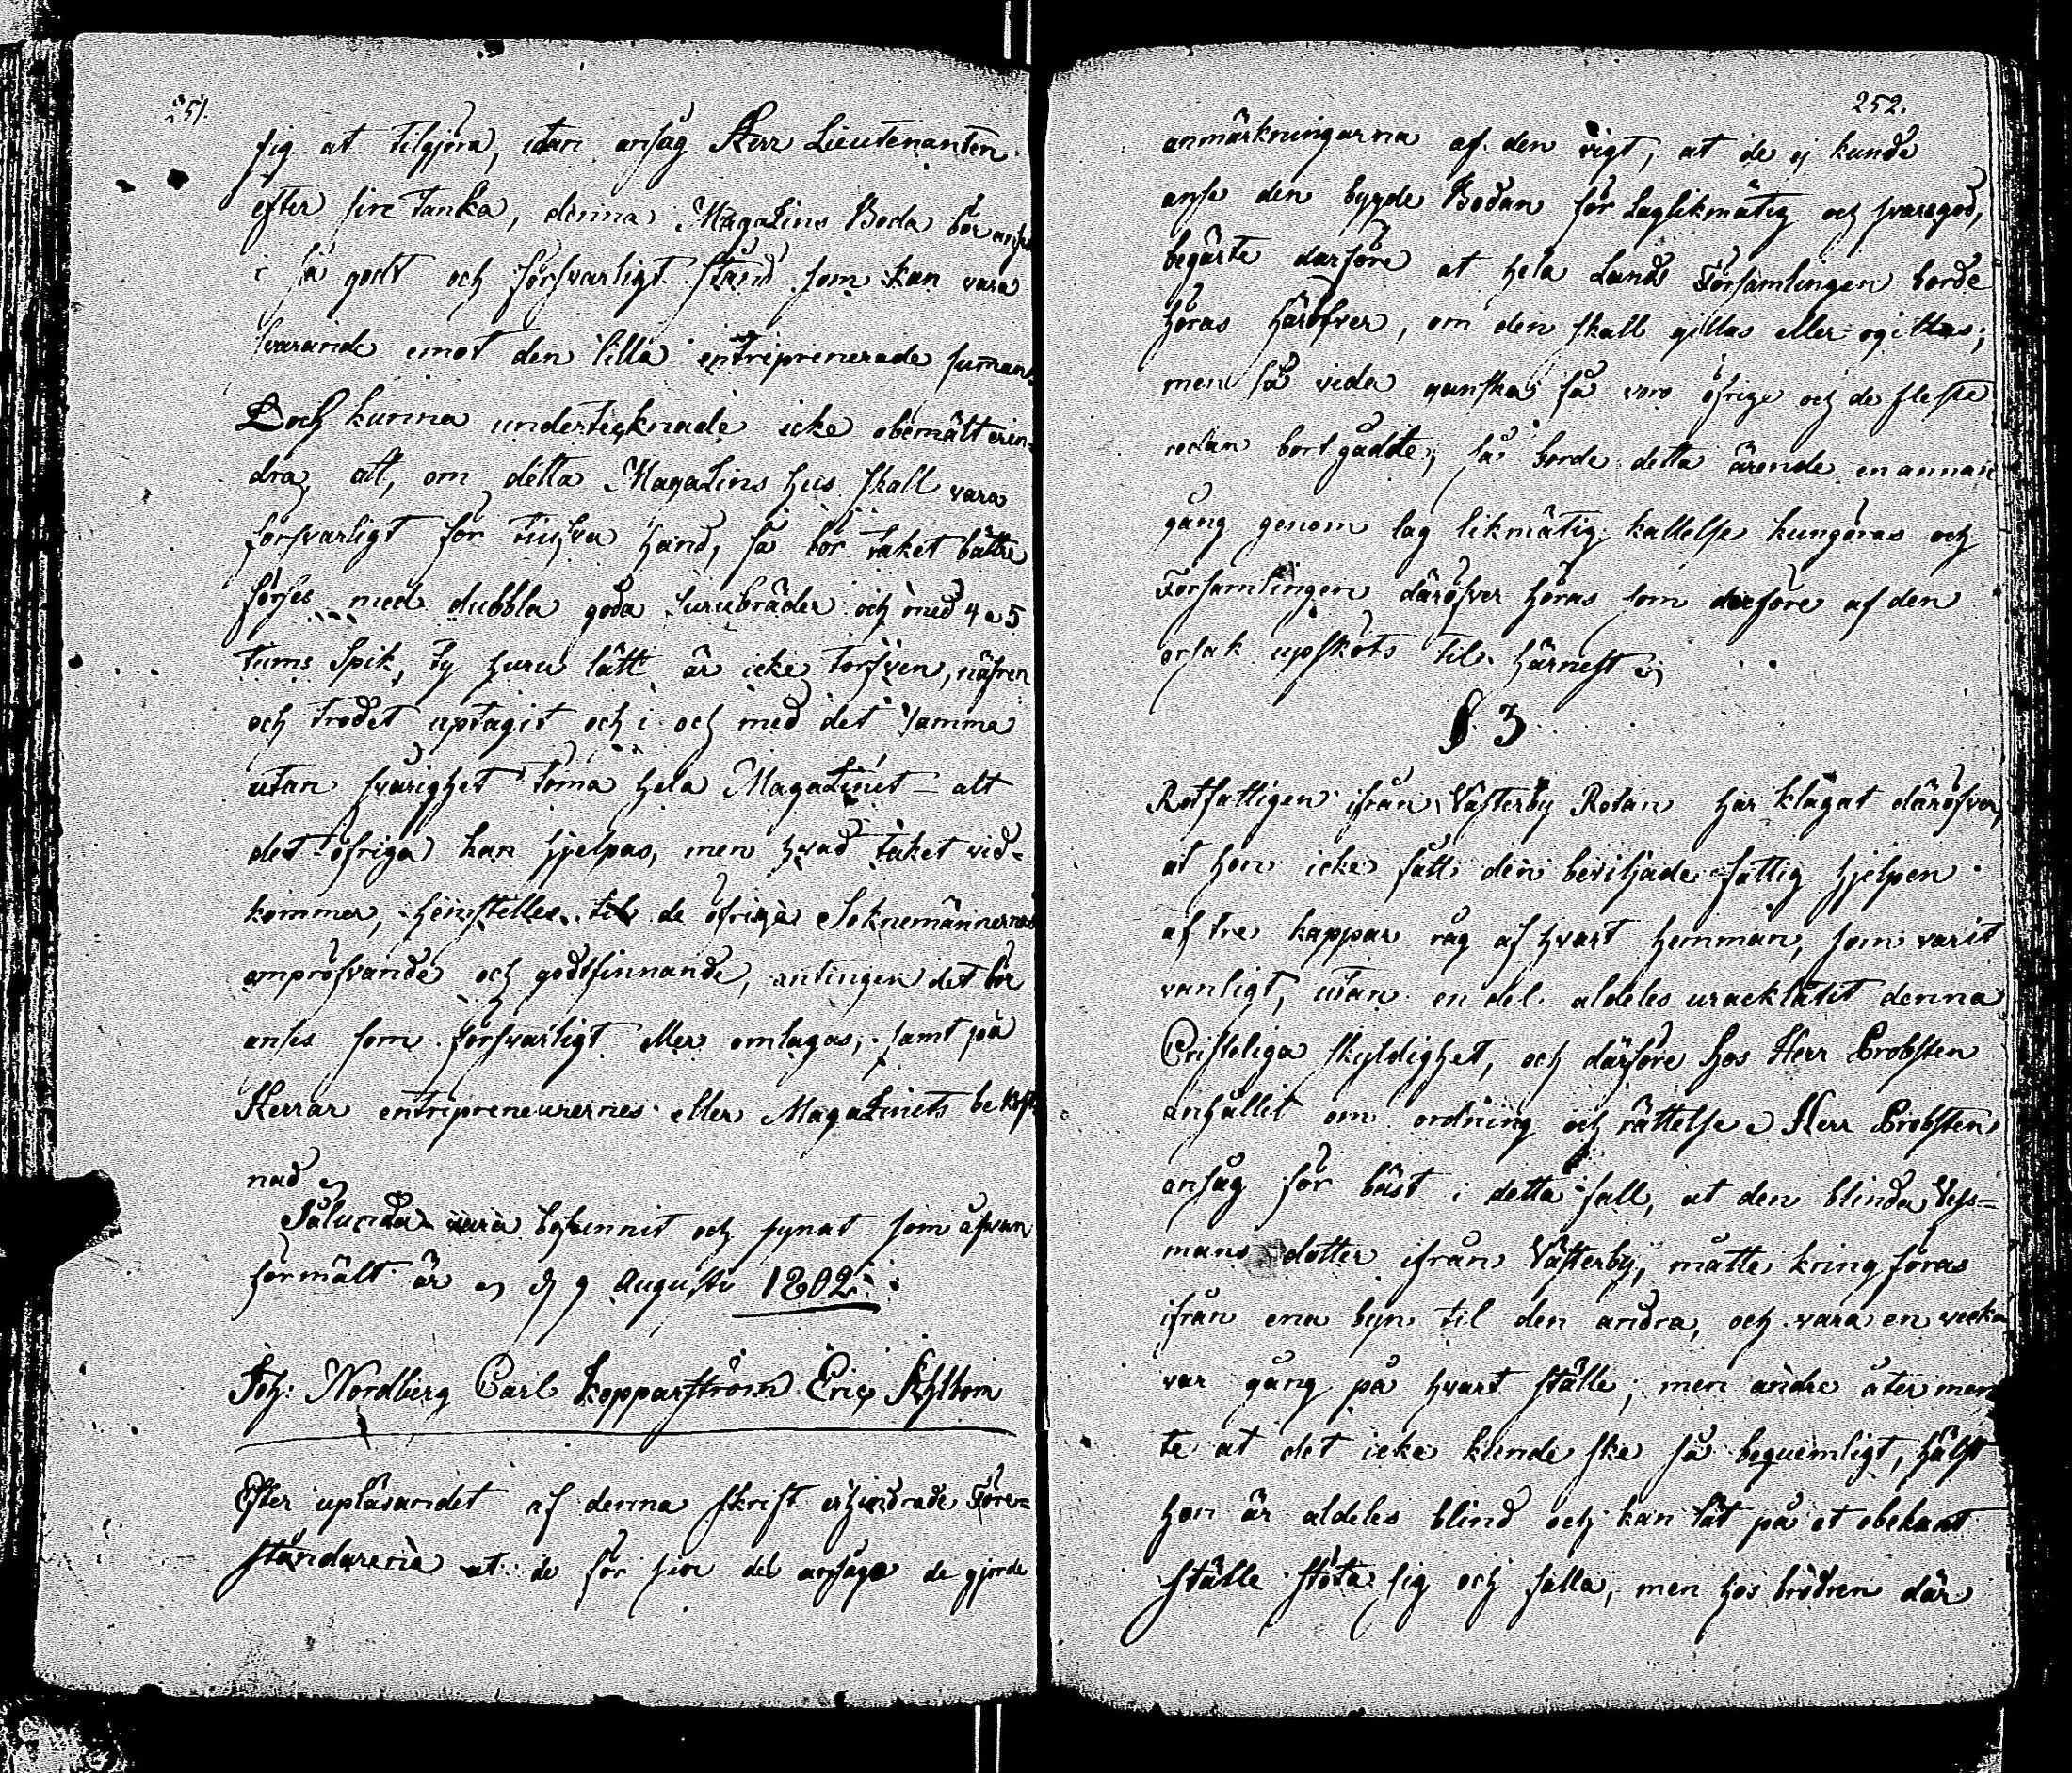 251.
sig at tilgjöra, utan ansåg Herr Lieutenanten
efter sin tanka, denna Magazins Boda bör anses
i så godt och försvarligt stånd som kan vara
svarande emot den lilla entreprenerade suman.
Doch kunna undertecknade icke obemält erin-
dra, att, om detta Magazins hus skall vara
försvarligt för tiufva hand, så bör taket bättre
förses med dubbla goda furubräder och med 4 a 5
tums Spik, ty huru lätt är icke torfven, näfren
och trodet uptagit och i och med det samma
utan svårighet töma hela Magazinet – alt
det öfriga kan hjelpas, men hvad taket vid-
kommer, hemstelles til de öfriga Soknemännernas
ompröfvande och godtfinnande, antingen det bör
anses som försvarligt eller omlagas, samt på
Herrar entrepreneurernes eller Magazinets bekost-
nad
Sålunda vara befunnit och synat som åfvan
förmält är d 9 Augusti 1802.
Joh: Nordberg Carl Kopparström Eric
Efter upläsandet af denna skrift erhindrade Före-
ståndarena at de för sin del ansågo de gjorde
252.
anmärkningarna af den vigt, at de ej kunde
anse den bygde Bodan för Laglikmätig och svaregod,
begärte darföre at hela Lands Församlingen borde
höras häröfver, om den skall gillas eller ogillas;
men så vida ganska få voro öfrige och de fleste
redan bortgådde, så borde detta ärende en annan
gång genom lag likmätig kallelse kungöras och
Församlingen däröfver höras som derföre af den
orsak upsköts til härnest
§. 3
Rotfattigen ifrån Västerby Rotan har klagat däröfver,
at hon icke fått den beviljade fattig hjelpen
af tre kappar råg af hvart hemman, som varit
vanligt, utan en del aldeles uraclåtit denna
Cristeliga skyldighet, och därföre hos Herr Probsten
anhållit om ordning och rättelse Herr Probsten
ansåg för bäst i detta fall, at den blinda
mans dotter ifrån Västerby, måtte kring föras
ifrån ena byn til den andra, och vara en vecka
var gång på hvart ställe; men andre åter men
te at det icke kunde ske så beqvemligt, hälst
hon är aldeles blind och kan lät på et obekant
ställe stöta sig och falla, men hos brodren där